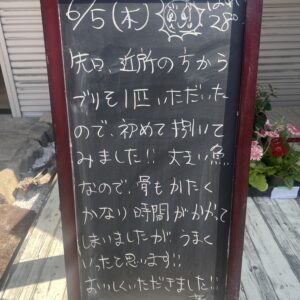 6/5(木)
28°
先日、近所の方から
ブリを1匹いただいた
ので、初めて捌いて
みました!! 丈夫い魚
なので、骨もかたく
かなり時間がかかって
しまいましたが うまく
いったと思います!!
おいしくいただきました!!